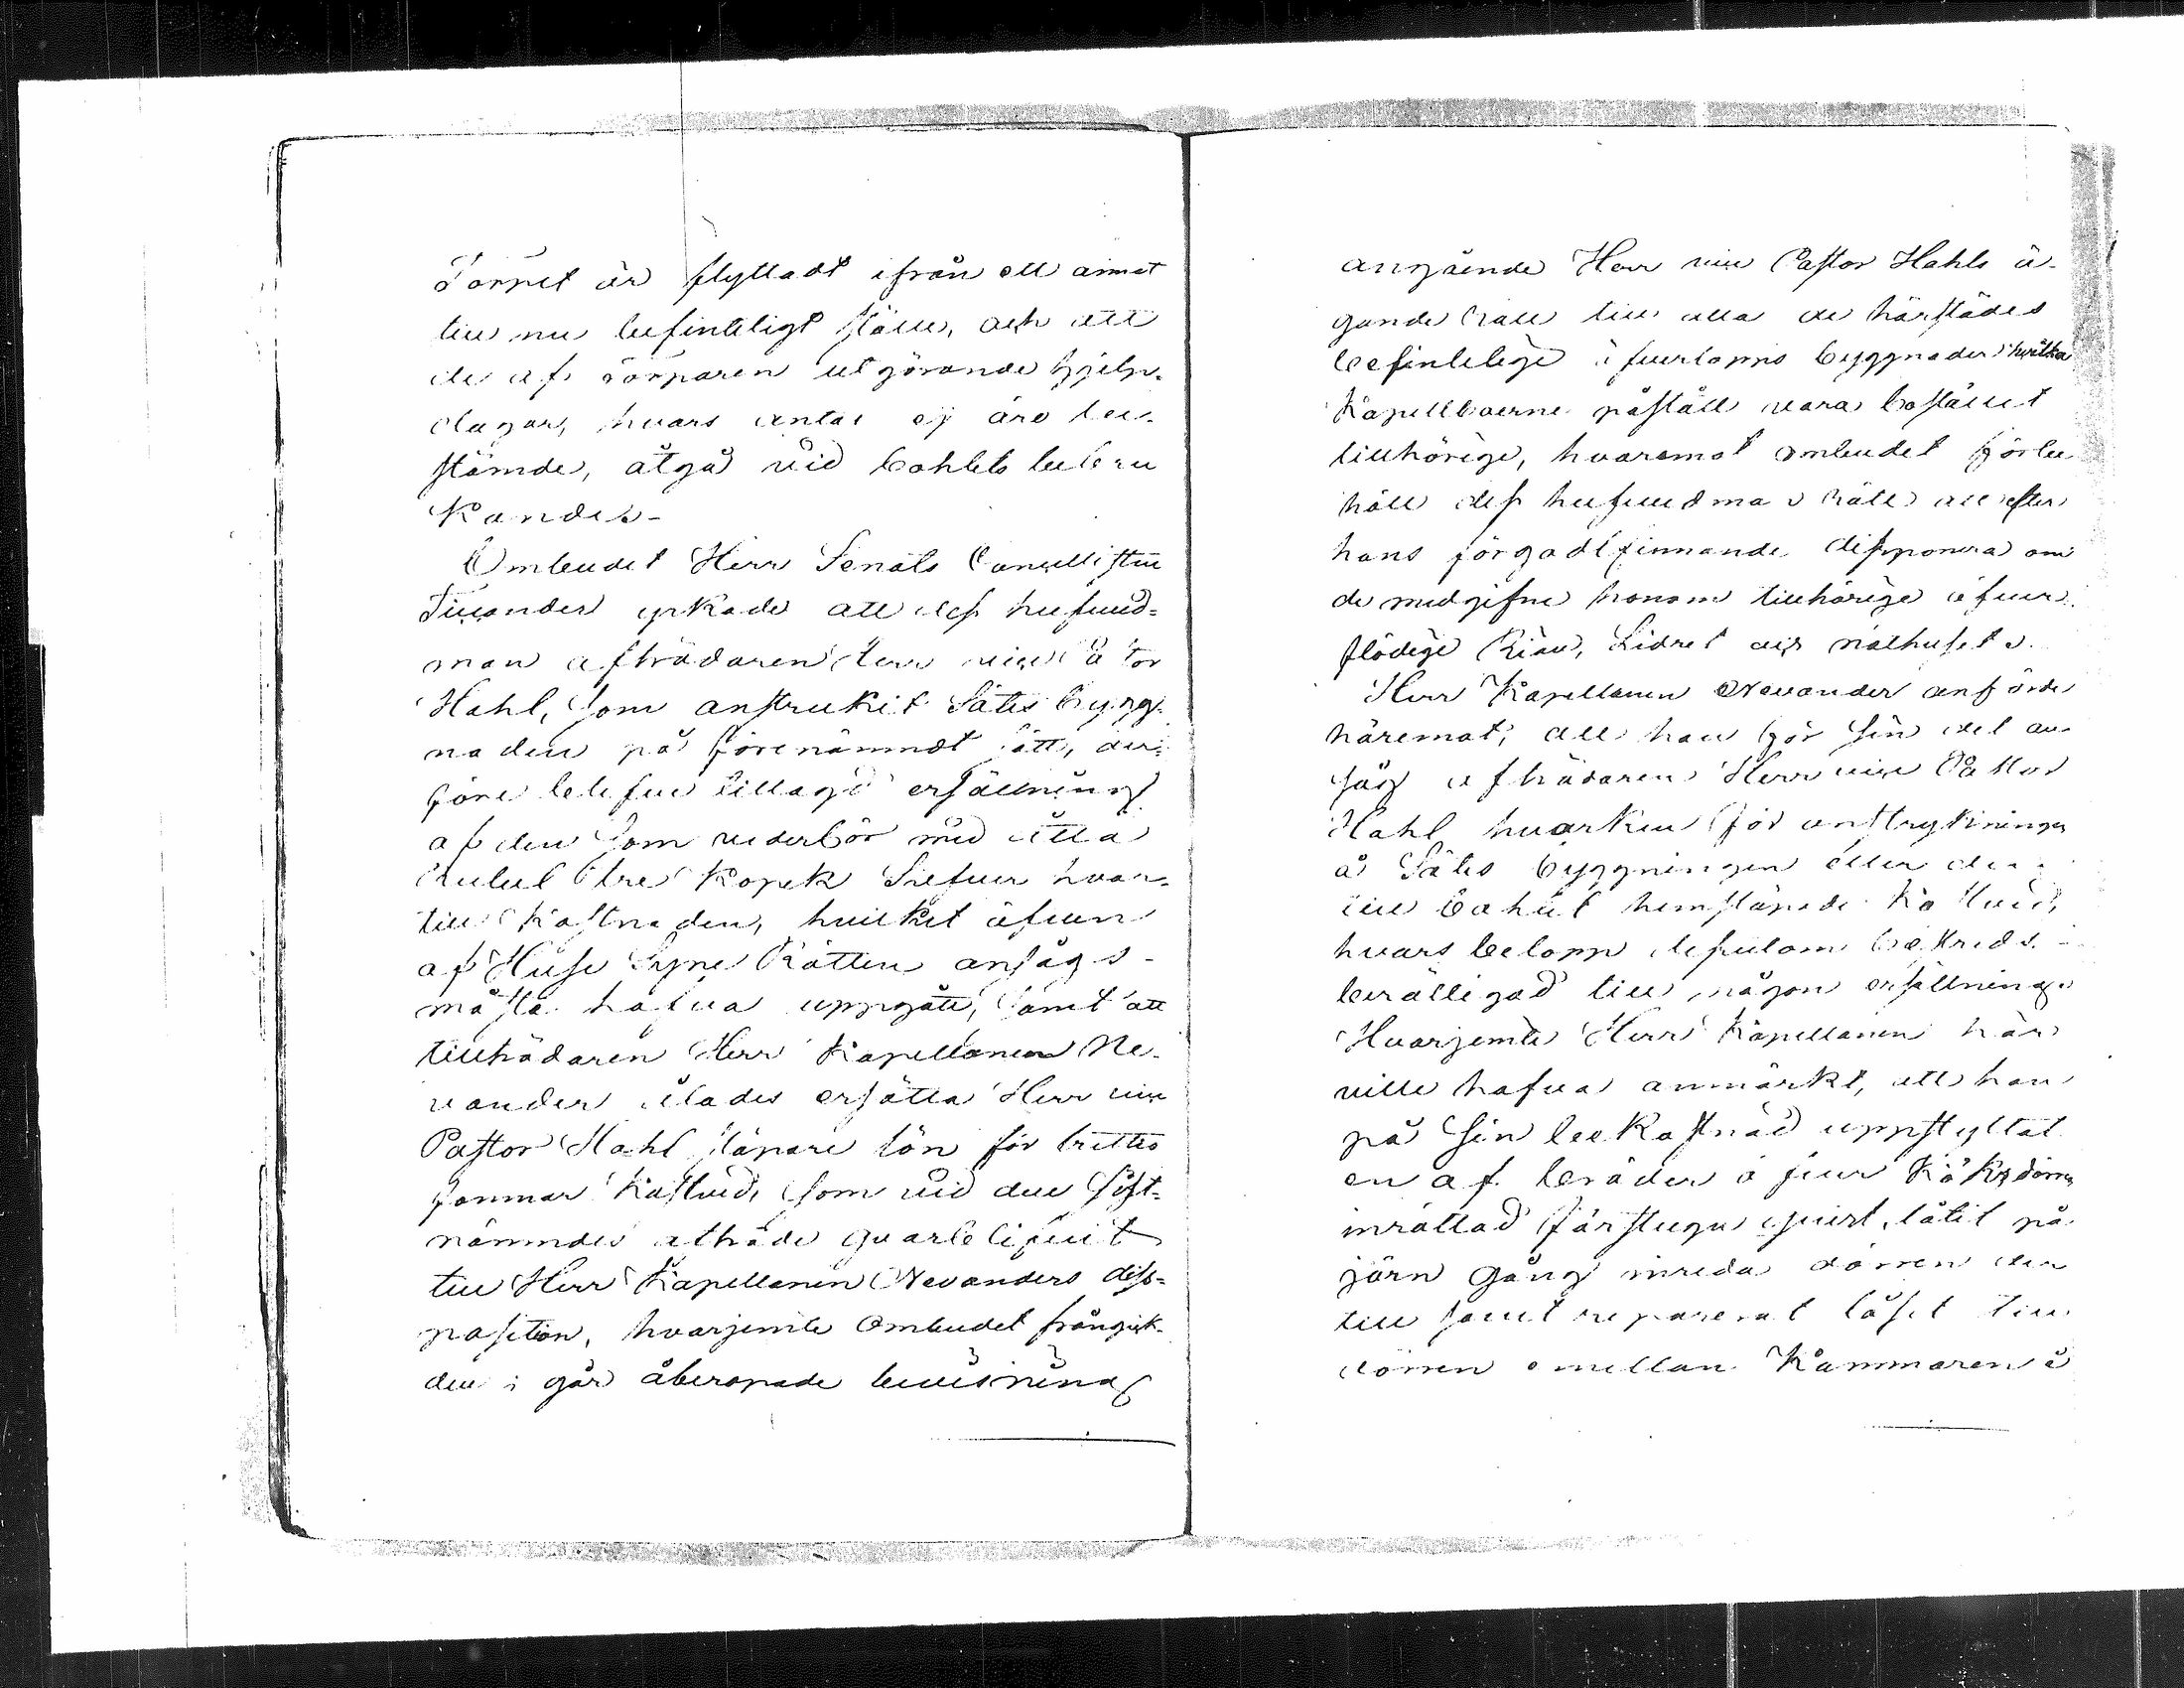 Torpet är flyttadt ifrån ett annat
till nu befinteligt ställe, och att
de af torparen utgörande hjelp-
dagar, hvars antal ej äro be-
stämde, åtgå vid bohlets bebru
kandes-
Ombudet Herr Senats Cancellisten
Ticander yrkade att dess hufvud-
man afträdaren Herr vice Pastor
Hahl, som anstrukit Sätes bygg-
naden på förenämndt sätt, der-
före blefve tillagd ersättning
af den som vederbör med åtta
Rubel tre kopek Silfver hvar-
till kostnaden, hvilket äfven
af Huse Syne Rätten ansågs
måste hafva uppgått, samt att
tillträdaren Herr Kapellanen Ne-
vander ålades ersätta Herr vice
Pastor Hahl släpare lön för trettio
famnar Kastved, som vid den sist-
nämndes aträde qvarblifvit
till Herr Kapellanen Nevanders diss-
position, hvarjemte Ombudet frångick
den i går åberopade bevisning
angående Herr vice Pastor Hahls ä-
gande rätt till alla de härstädes
befintelige öfverlopps byggnader hvilka
Kapellboerne påstått vara bostället
tillhörige, hvaremot ombudet förbe
höll dess hufvudmans rätt att efter
hans förgodtfinnande dissponera om
de medgifne honom tillhörige öfver-
flödige Rian, Lidret och nöthuset.
Herr Kapellanen Nevander anförde
häremot; att han för sin del an-
såg afträdaren Herr vice Pastor
Hahl hvarken för anstrykningen
å Sätes byggningen eller den
till bohlet hemsläpade Kastved,
hvars belopp dessutom bestreds
berättigad till någon ersättning.
Hvarjemte Herr Kapellanen här
ville hafva anmärkt, att han
på sin bekostnad uppstyltat
en af bräder öfver Köksdörren
inrättad farstugu qvist, låtit på
järn gång inreda dörren der
till samt reparerat låset till
dörren emellan Kammaren å